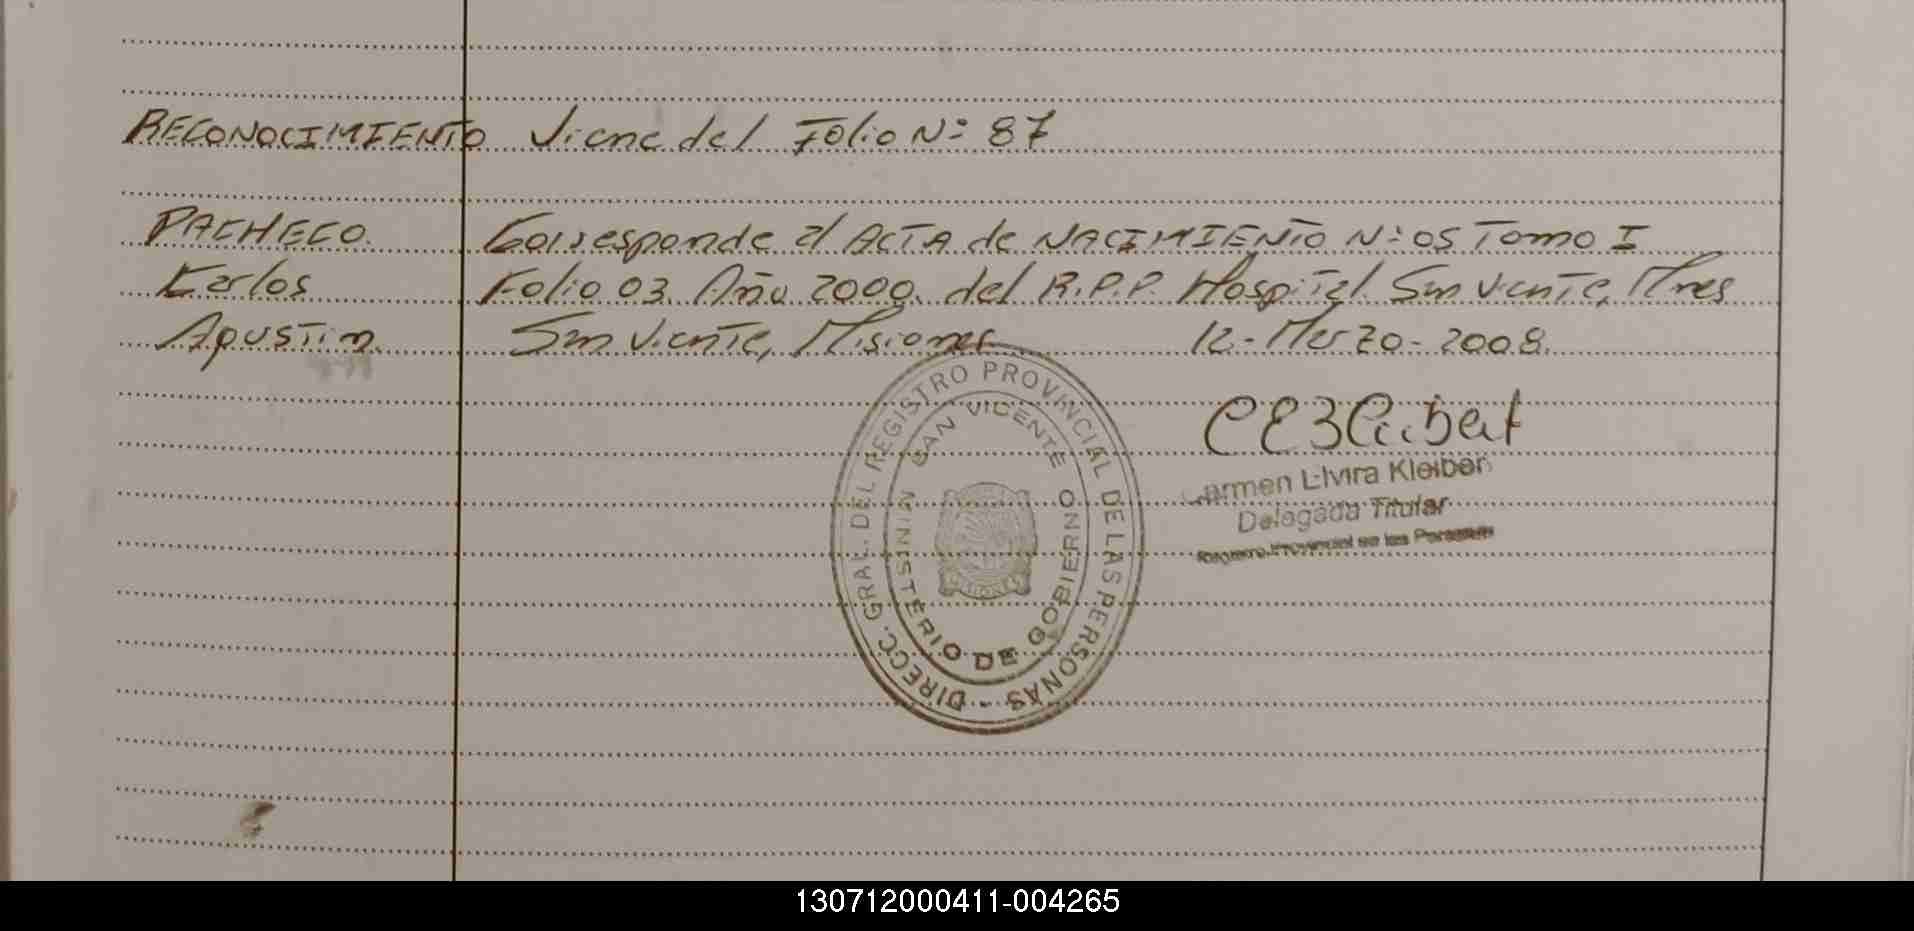 RECONOCIMIENTO Viene del Folio Nº 87
PACHECO Corresponde al ACTA de NACIMIENTO Nº 05 Tomo I
Karlos Folio 03 Año 2000. del R.P.P. Hospital San Vicente, Mnes
Agustin San Vicente, Misiones 12-Marzo-2008.
DIRECC. GRAL. DEL REGISTRO PROVINCIAL DE LAS PERSONAS -
SAN VICENTE
MINISTERIO DE GOBIERNO
Carmen Elvira Kleiber
Delegada Titular
Registro Provincial de las Personas
130712000411-004265